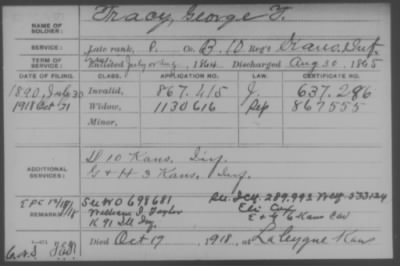 NAME OF SOLDIER: Tracy, George T.
SERVICE: Late rank, P. Co. B. 10 Reg't Kans. Inf.
TERM OF SERVICE: Enlisted July or Aug, 1864 Discharged Aug 30, 1865
DATE OF FILING. CLASS. APPLICATION NO. LAW. CERTIFICATE NO.
1890, July 30 Invalid, 867.415 J. 637.286
1918 Oct 31 Widow, 1130616 867555
Minor,
ADDITIONAL SERVICES: D 10 Kans. Inf.
G & H 3 Kans. Inf.
REMARKS: See WO 698681
William I. Taylor
K 91 Ill Inf.
289.993 333124
Eli Cox
E & G 6 Kans Cav
Died Oct 17, 1918, at LaCygne Kans